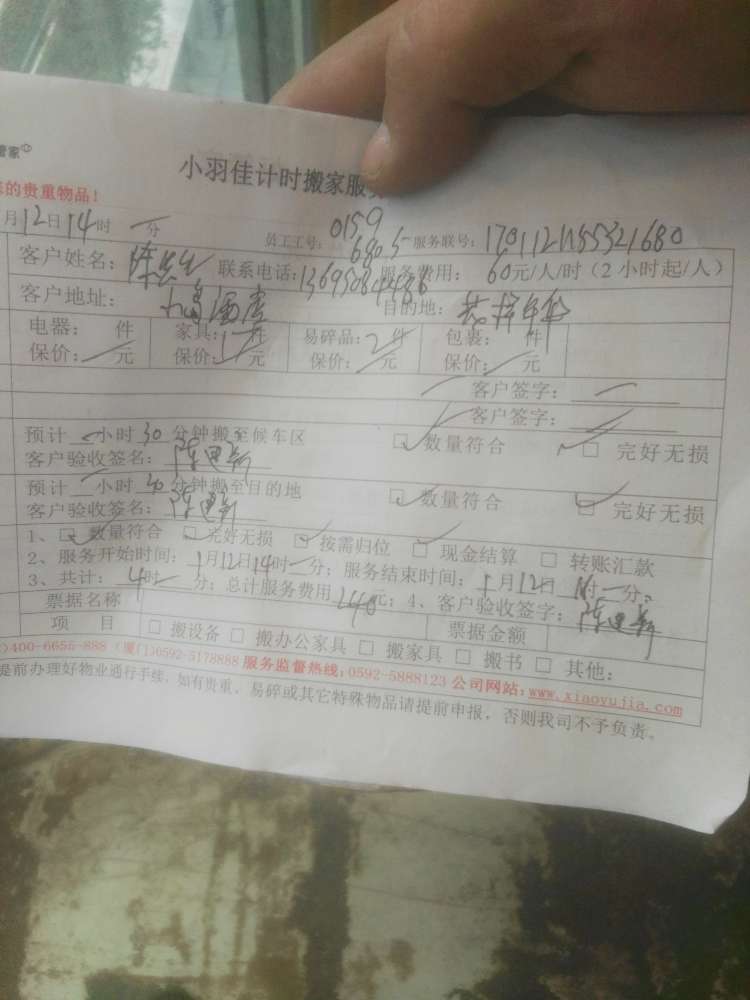 管家
小羽佳计时搬家服
的贵重物品!
月12日14时一分
员工工号: 0159 6805 服务联号: 1701121155321680
客户姓名: 陈先生 联系电话: 服务费用: 60元/人/时(2小时起/人)
客户地址: 目的地:
电器: 件 家具: 件 易碎品: 2件 包裹: 件
保价: 元 保价: 元 保价: 元 保价: 元
客户签字:
客户签字:
预计 小时30分钟搬至候车区 □数量符合 □完好无损
客户验收签名:
预计 小时30分钟搬至目的地 □数量符合 □完好无损
客户验收签名:
1、□数量符合 □完好无损 □按需归位 □现金结算 □转账汇款
2、服务开始时间: 1月12日14时一分; 服务结束时间: 1月12日 时一分。
3、共计: 4时 分; 总计服务费用 240元; 4、客户验收签字:
票据名称 票据金额
项 目 □搬设备 □搬办公家具 □搬家具 □搬书 □其他:
)400-6655-888 (厦门)0592-5178888 服务监督热线:0592-5888123 公司网站:www.xiaoyujia.com
提前办理好物业通行手续, 如有贵重、易碎或其它特殊物品请提前申报, 否则我司不予负责。